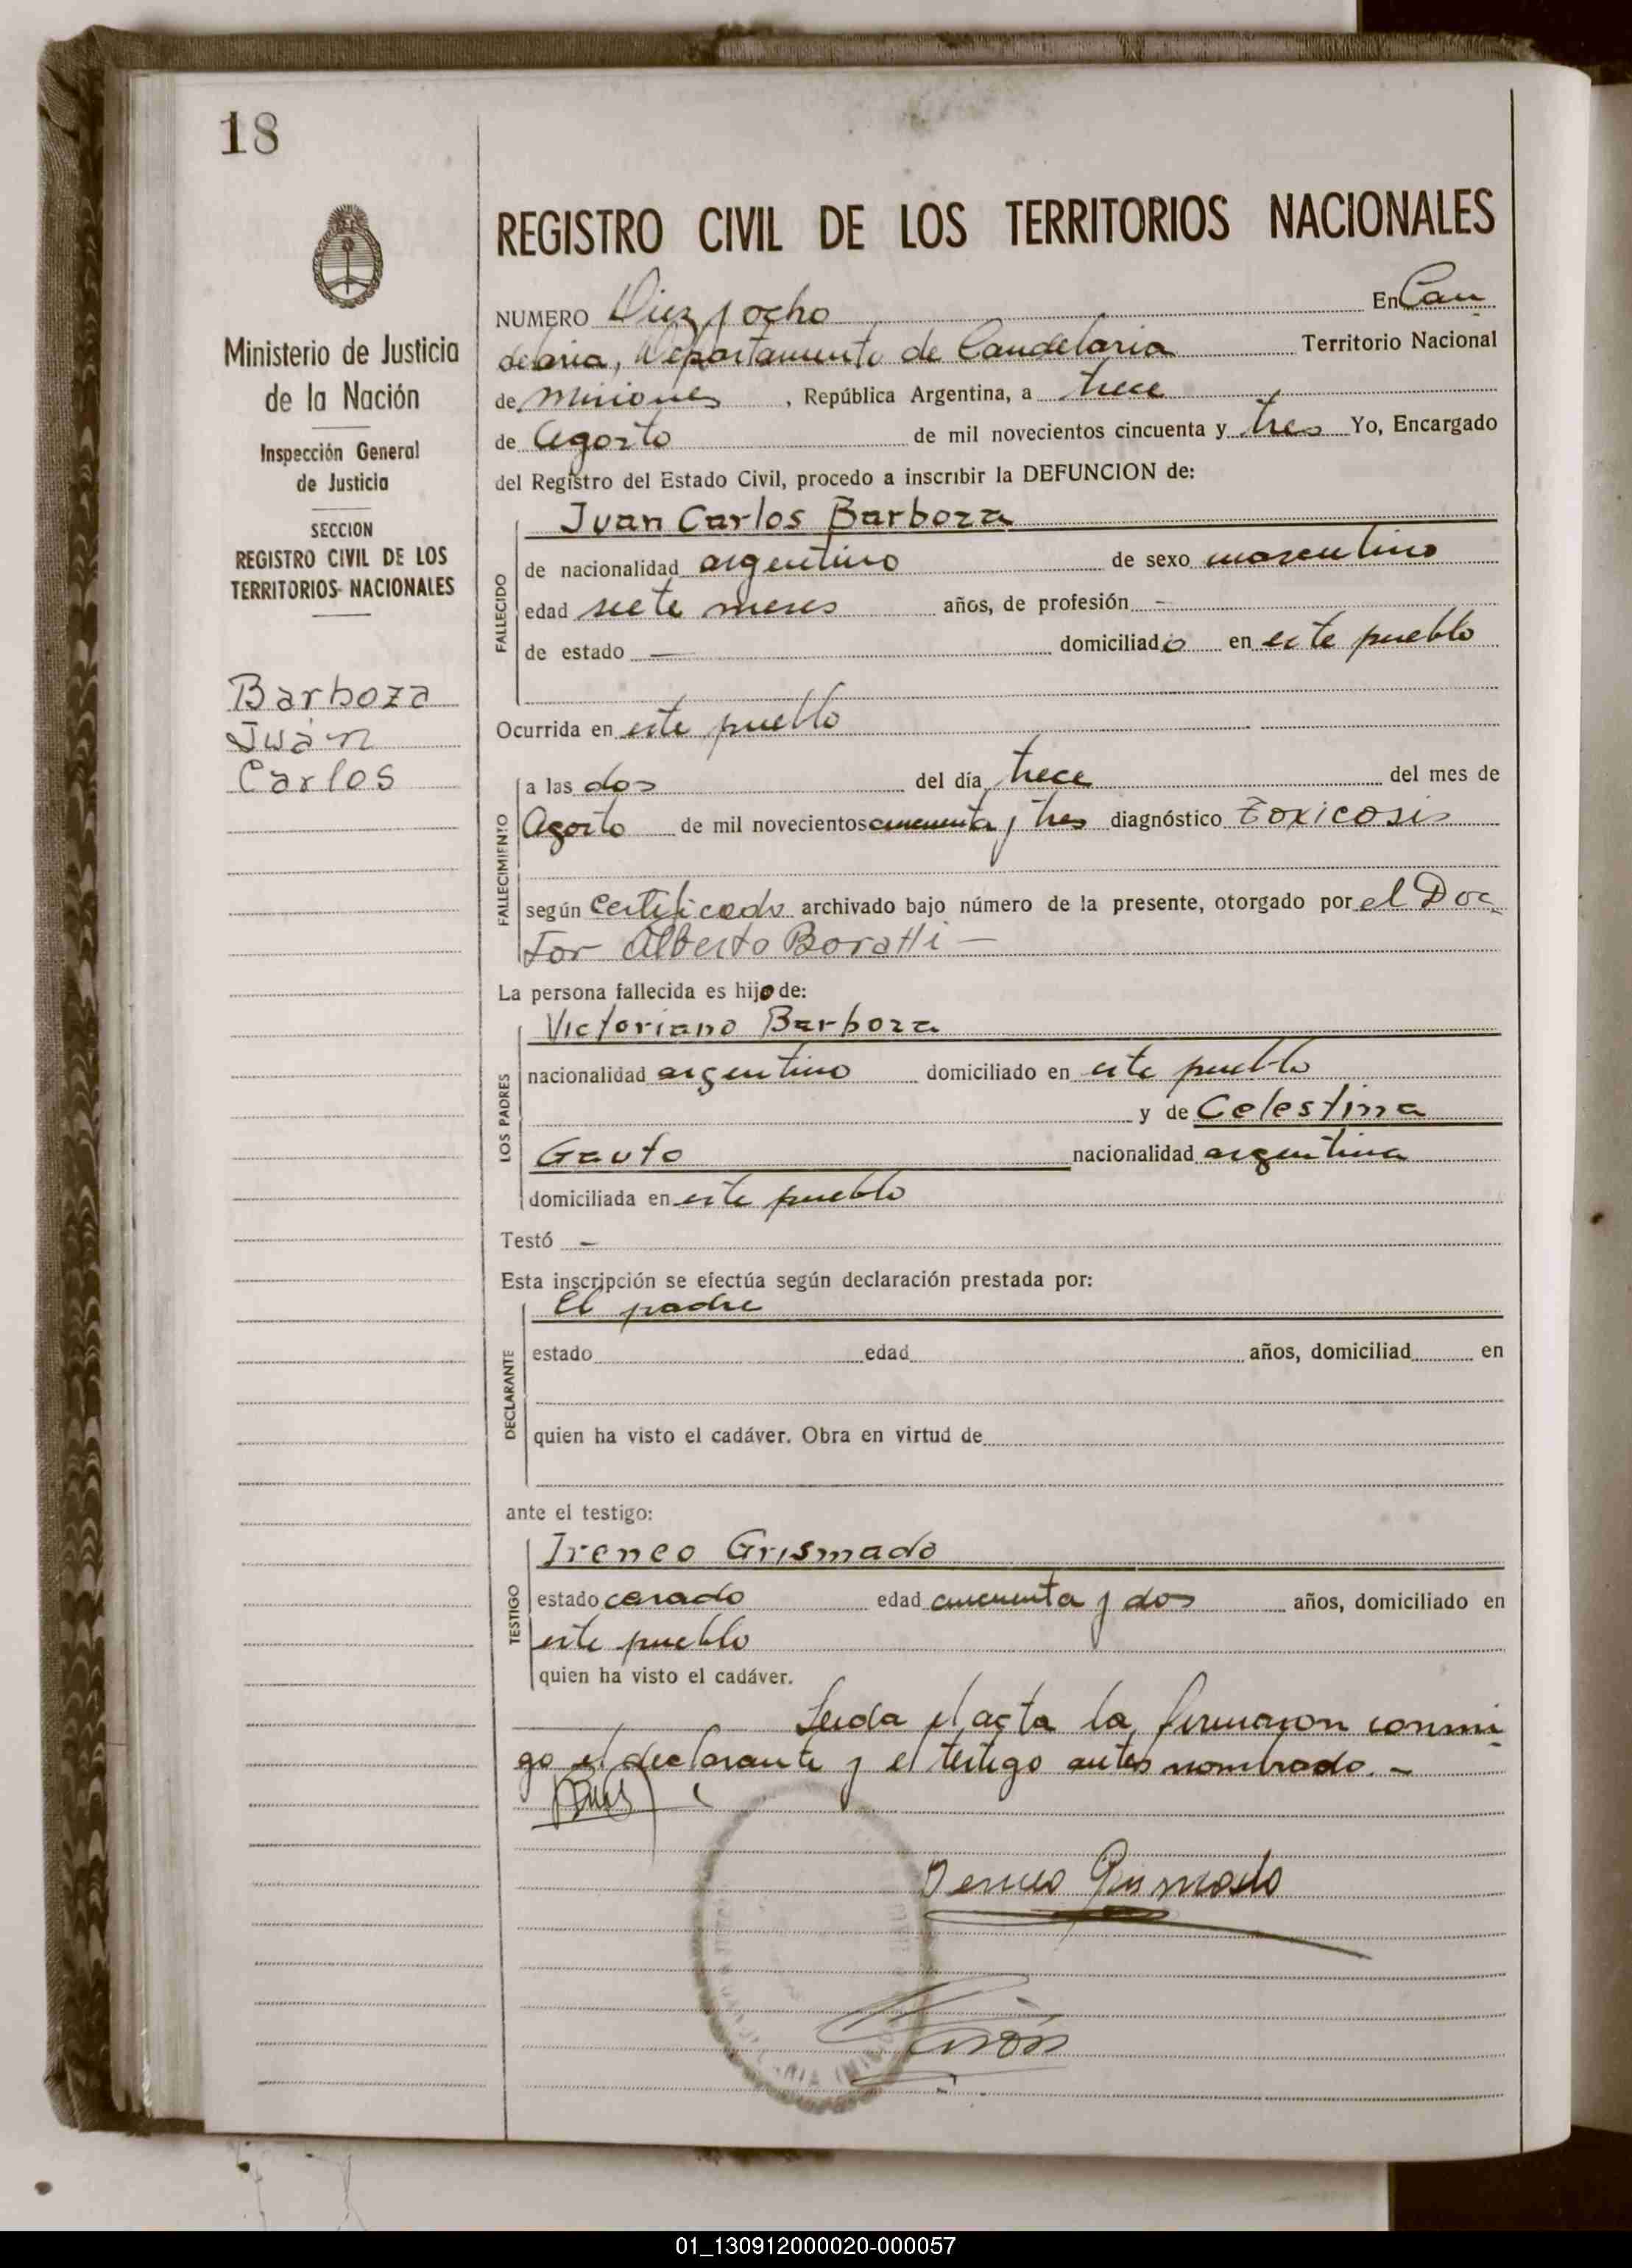 18
Ministerio de Justicia
de la Nación
Inspección General
de Justicia
SECCION
REGISTRO CIVIL DE LOS
TERRITORIOS NACIONALES
Barboza
Juan
Carlos
REGISTRO CIVIL DE LOS TERRITORIOS NACIONALES
NUMERO Diez y ocho En Can
delaria, Departamento de Candelaria Territorio Nacional
de Misiones, República Argentina, a trece
de Agosto de mil novecientos cincuenta y tres Yo, Encargado
del Registro del Estado Civil, procedo a inscribir la DEFUNCION de:
Juan Carlos Barboza
FALLECIDO
de nacionalidad argentino de sexo masculino
edad siete meses años, de profesión -
de estado — domiciliado en este pueblo
Ocurrida en este pueblo
FALLECIMIENTO
a las dos del día trece del mes de
Agosto de mil novecientos cincuenta y tres diagnóstico toxicosis
según certificado archivado bajo número de la presente, otorgado por el Doc-
tor Alberto Boratti —
La persona fallecida es hijo de:
LOS PADRES
Victoriano Barboza
nacionalidad argentino domiciliado en este pueblo
y de Celestina
Gauto nacionalidad argentina
domiciliada en este pueblo
Testó -
Esta inscripción se efectúa según declaración prestada por:
DECLARANTE
El padre
estado edad años, domiciliad en
quien ha visto el cadáver. Obra en virtud de
ante el testigo:
TESTIGO
Ireneo Grismado
estado casado edad cincuenta y dos años, domiciliado en
este pueblo
quien ha visto el cadáver.
Leida el acta la firmaron conmi-
go el declarante y el testigo antes nombrado. -
Ireneo Grismado
01_130912000020-000057